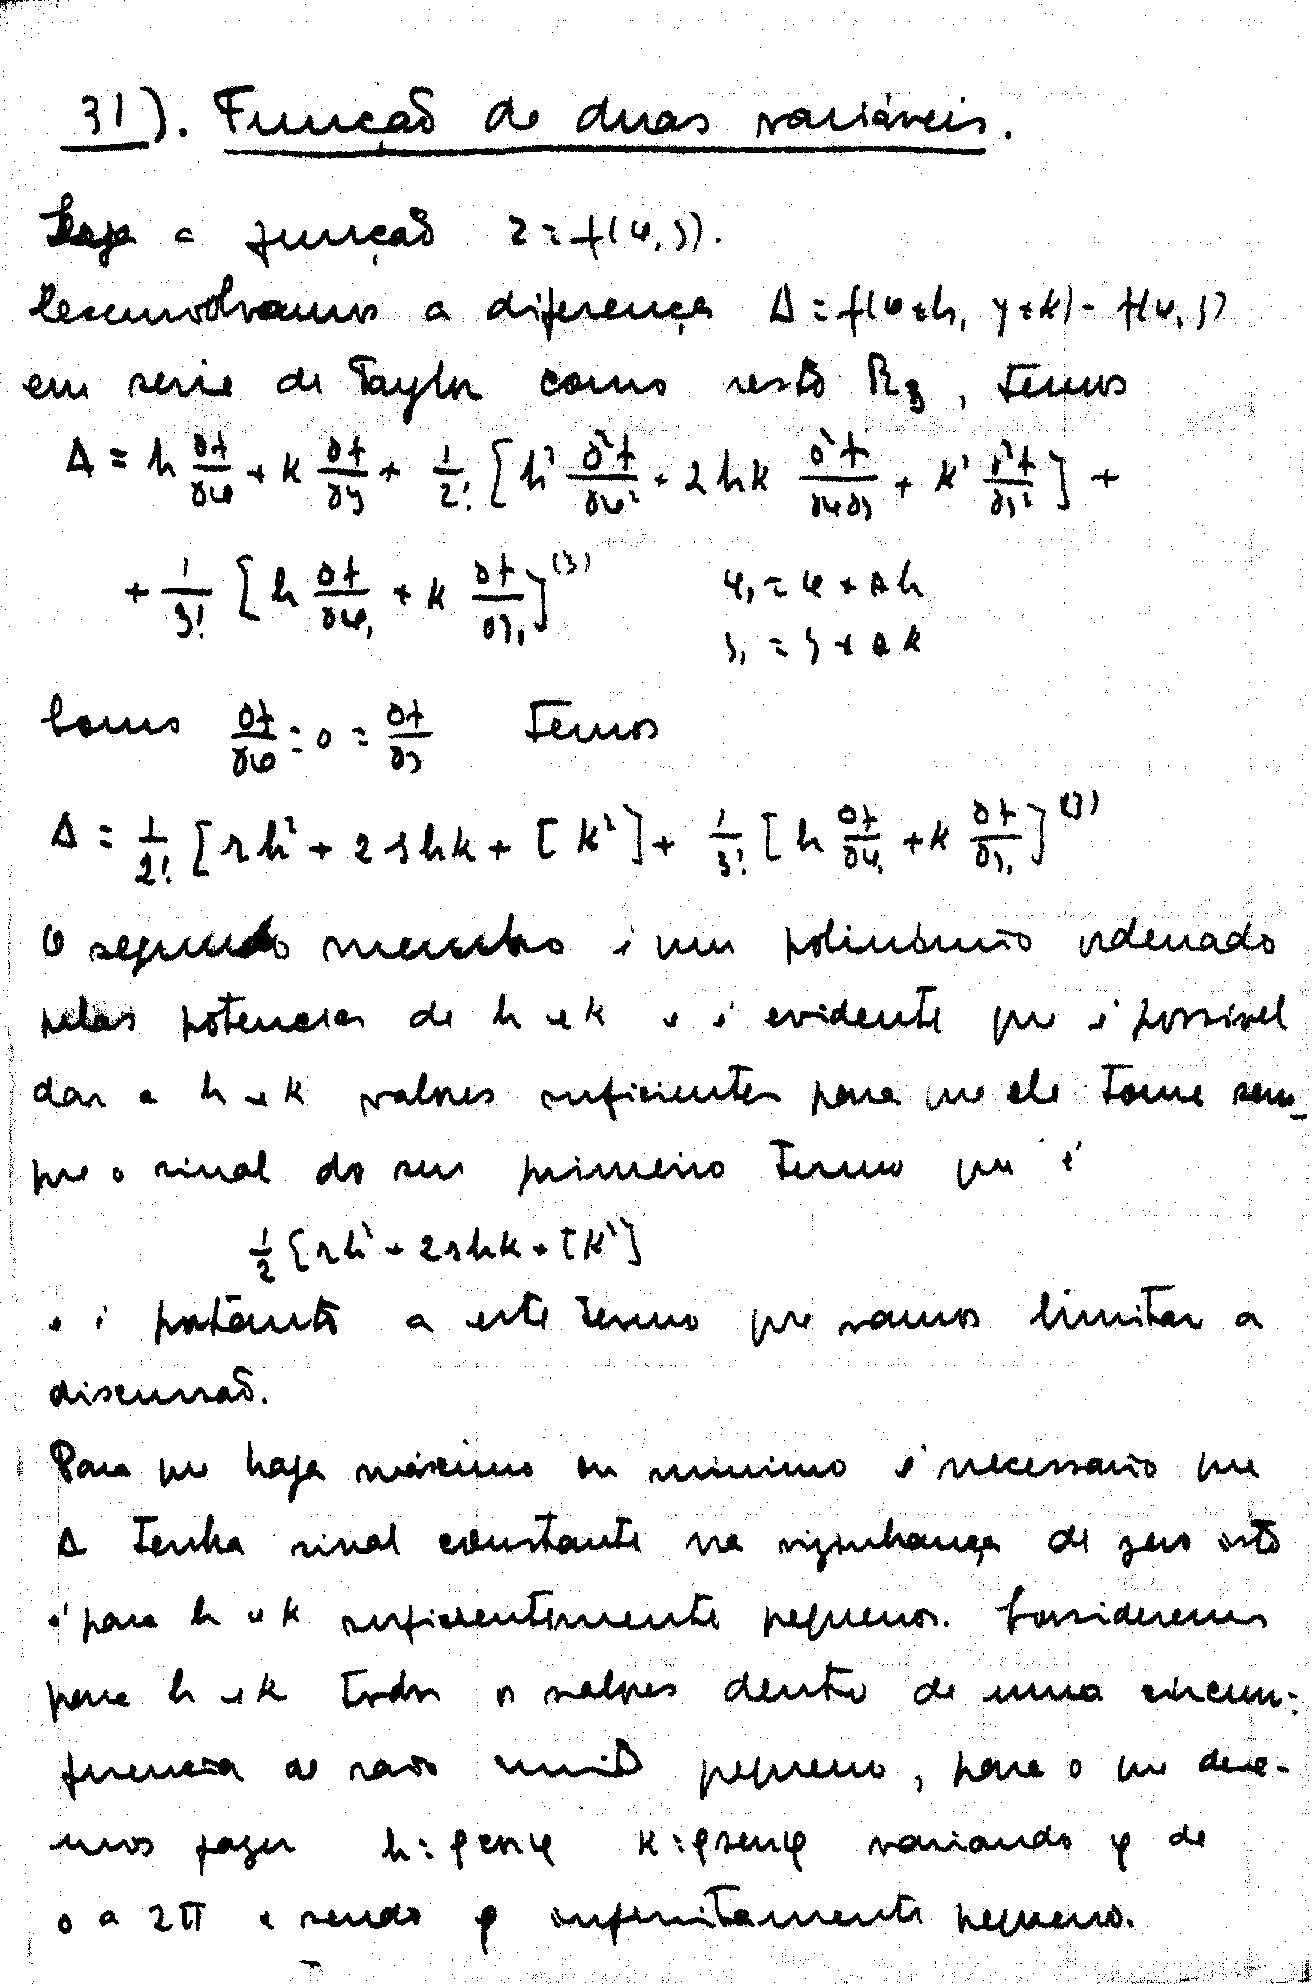 31). Função de duas variáveis.
Seja a função z = f(x, y).
Desenvolvamos a diferença Δ = f(x+h, y+k) - f(x, y)
em serie de Taylor como resto R3, temos
Δ = h ∂f/∂x + k ∂f/∂y + 1/2! [h² ∂²f/∂x² + 2hk ∂²f/∂x∂y + k² ∂²f/∂y²] +
+ 1/3! [h ∂f/∂x₁ + k ∂f/∂y₁]⁽³⁾ x₁ = x + θh
y₁ = y + θk
Como ∂f/∂x = 0 = ∂f/∂y temos
Δ = 1/2! [rh² + 2shk + tk²] + 1/3! [h ∂f/∂x₁ + k ∂f/∂y₁]⁽³⁾
O segundo membro é um polinómio ordenado
pelas potencias de h e k e é evidente que é possivel
dar a h e k valores suficientes para que ele tome sem-
pre o sinal do seu primeiro termo que é
1/2 [rh² + 2shk + tk²]
e é portanto a este termo que vamos limitar a
discussão.
Para que haja máximo ou minimo é necessario que
Δ tenha sinal constante na vizinhança de zero isto
é para h e k suficientemente pequenos. Consideremos
para h e k todos os valores dentro de uma circun-
ferencia de raio muito pequeno, para o que deve-
mos fazer h = ρ cos φ k = ρ sen φ variando φ de
0 a 2π e sendo ρ infinitamente pequeno.